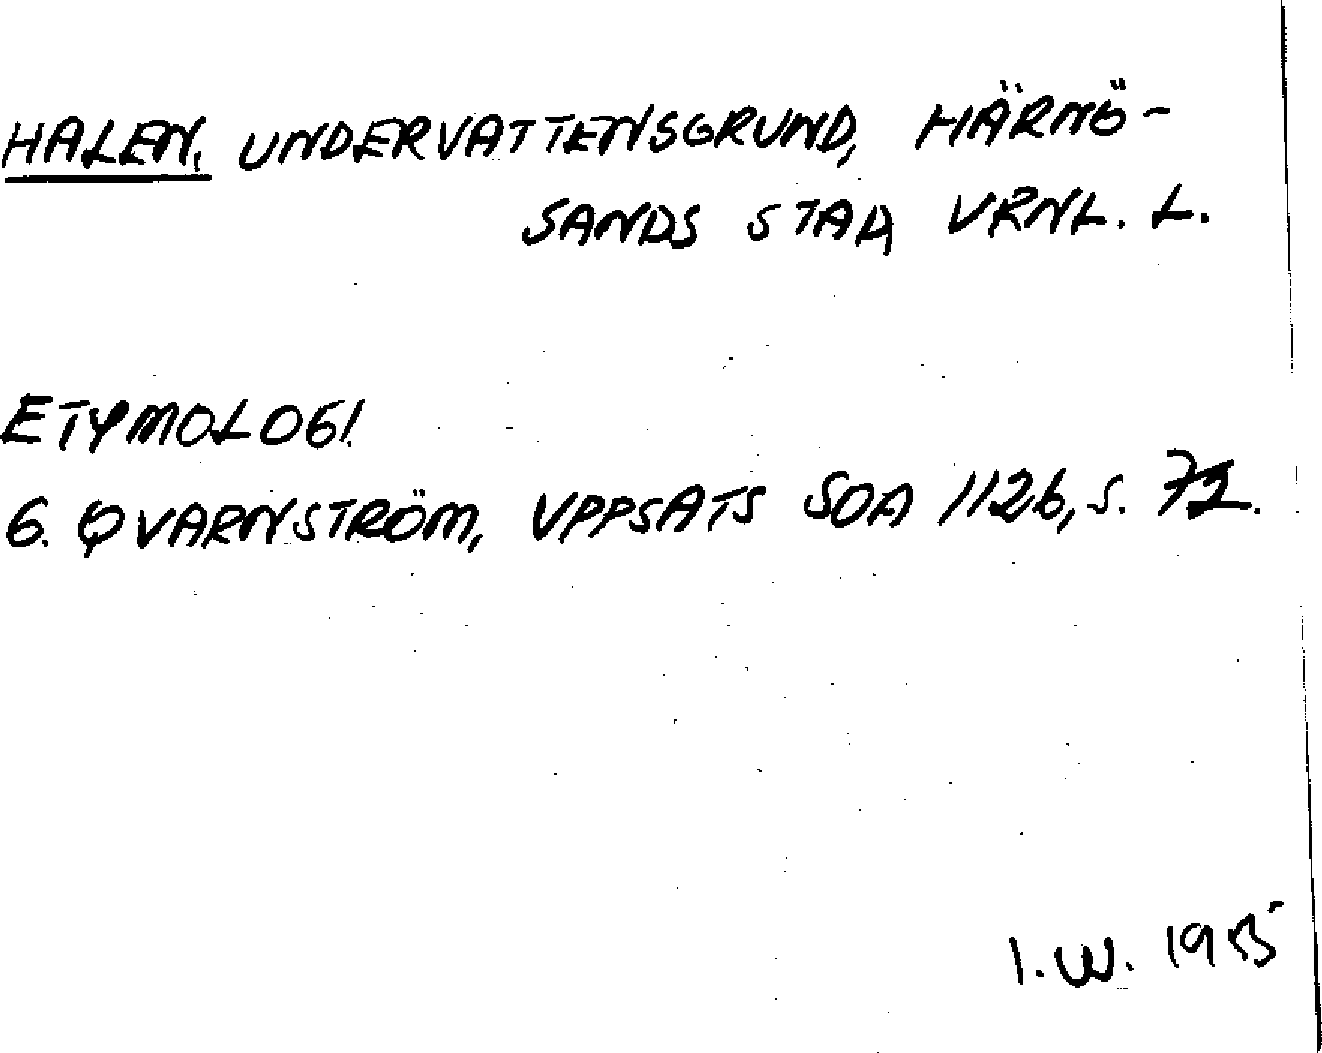 HALEN, UNDERVATTENSGRUND, HÄRNÖ-
SANDS STAD, VRNL. L.
ETYMOLOGI
G. QVARNSTRÖM, UPPSATS SOA 1126, S. 72.
I.W.